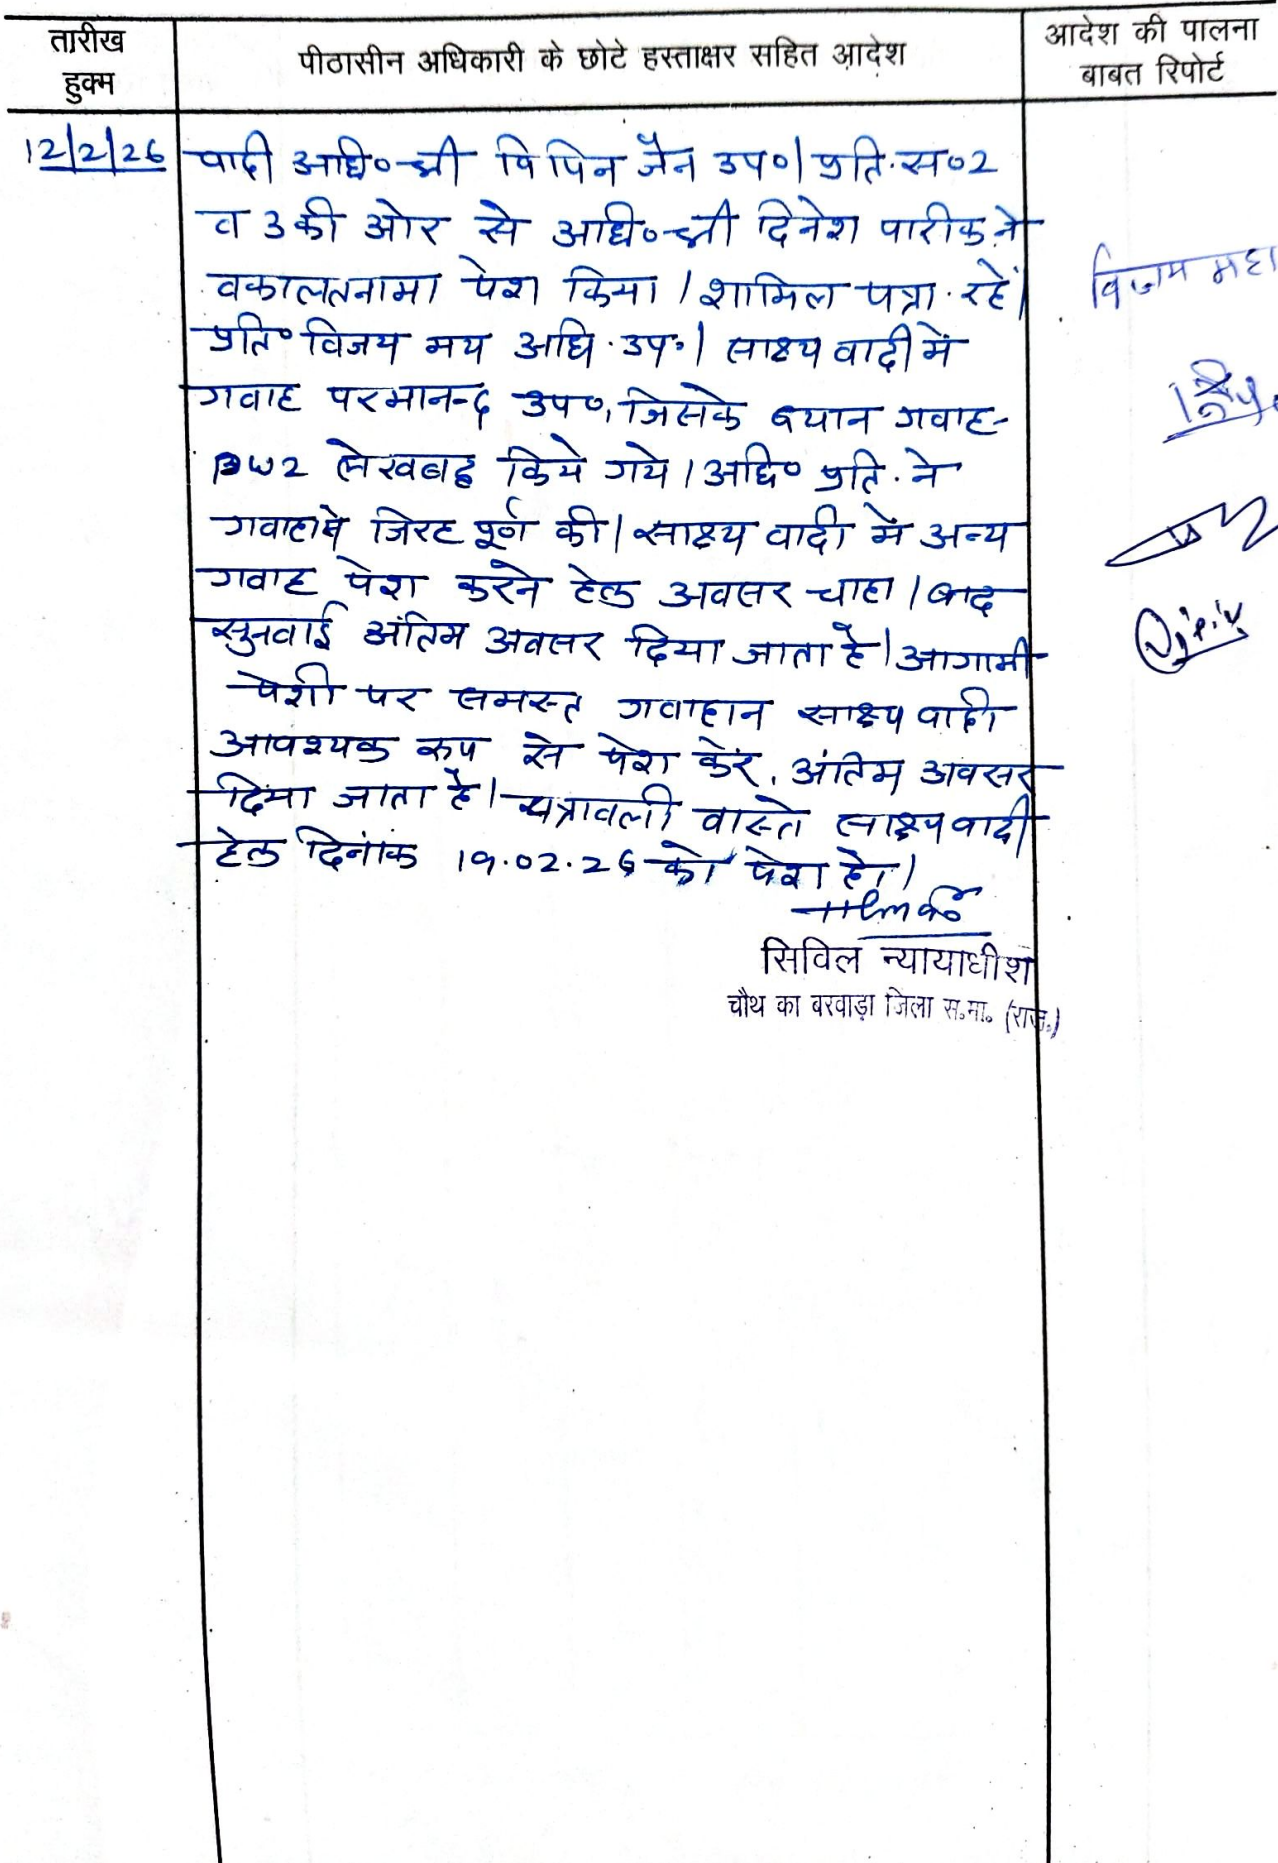 तारीख
हुक्म
पीठासीन अधिकारी के छोटे हस्ताक्षर सहित आदेश
आदेश की पालना
बाबत रिपोर्ट
12/2/26
वादी अधि० श्री विपिन जैन उप०। प्रति.स०2
व 3 की ओर से अधि० श्री दिनेश पारीक ने
वकालतनामा पेश किया। शामिल पत्रा. रहें।
प्रति० विजय मय अधि. उप.। साक्ष्य वादी में
गवाह परमानन्द उप०, जिसके बयान गवाह-
PW2 लेखबद्ध किये गये। अधि० प्रति. ने
जिरह पूर्ण की। साक्ष्य वादी में अन्य
गवाह पेश करने हेतु अवसर चाहा। बाद
सुनवाई अंतिम अवसर दिया जाता है। आगामी
पेशी पर समस्त गवाहान साक्ष्य वादी
आवश्यक रूप से पेश करें, अंतिम अवसर
दिया जाता है। पत्रावली वास्ते साक्ष्य वादी
हेतु दिनांक 19.02.26 को पेश हो।
सिविल न्यायाधीश
चौथ का बरवाड़ा जिला स.मा. (राज.)
विजय